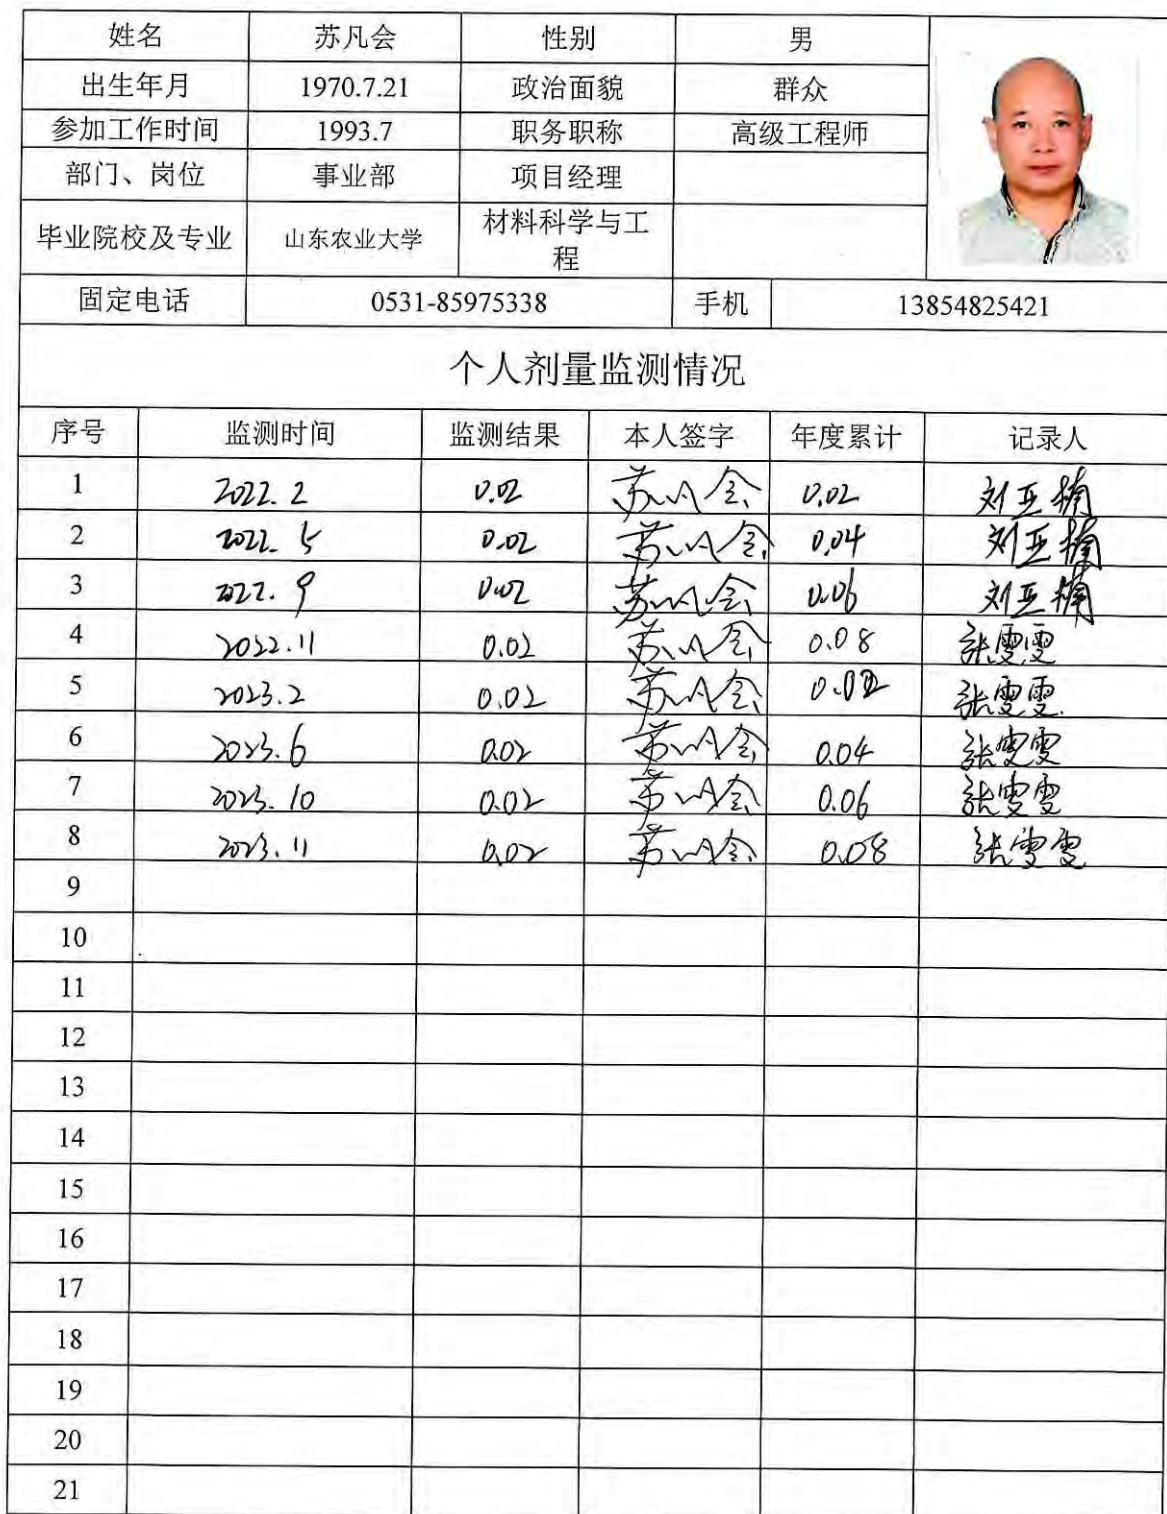 姓名 苏凡会 性别 男
出生年月 1970.7.21 政治面貌 群众
参加工作时间 1993.7 职务职称 高级工程师
部门、岗位 事业部 项目经理
毕业院校及专业 山东农业大学 材料科学与工程
固定电话 0531-85975338 手机 13854825421
个人剂量监测情况
序号 监测时间 监测结果 本人签字 年度累计 记录人
1 2022.2 0.02 苏凡会 0.02 刘亚楠
2 2022.5 0.02 苏凡会 0.04 刘亚楠
3 2022.9 0.02 苏凡会 0.06 刘亚楠
4 2022.11 0.02 苏凡会 0.08 张雯雯
5 2023.2 0.02 苏凡会 0.02 张雯雯
6 2023.6 0.02 苏凡会 0.04 张雯雯
7 2023.10 0.02 苏凡会 0.06 张雯雯
8 2023.11 0.02 苏凡会 0.08 张雯雯
9
10
11
12
13
14
15
16
17
18
19
20
21